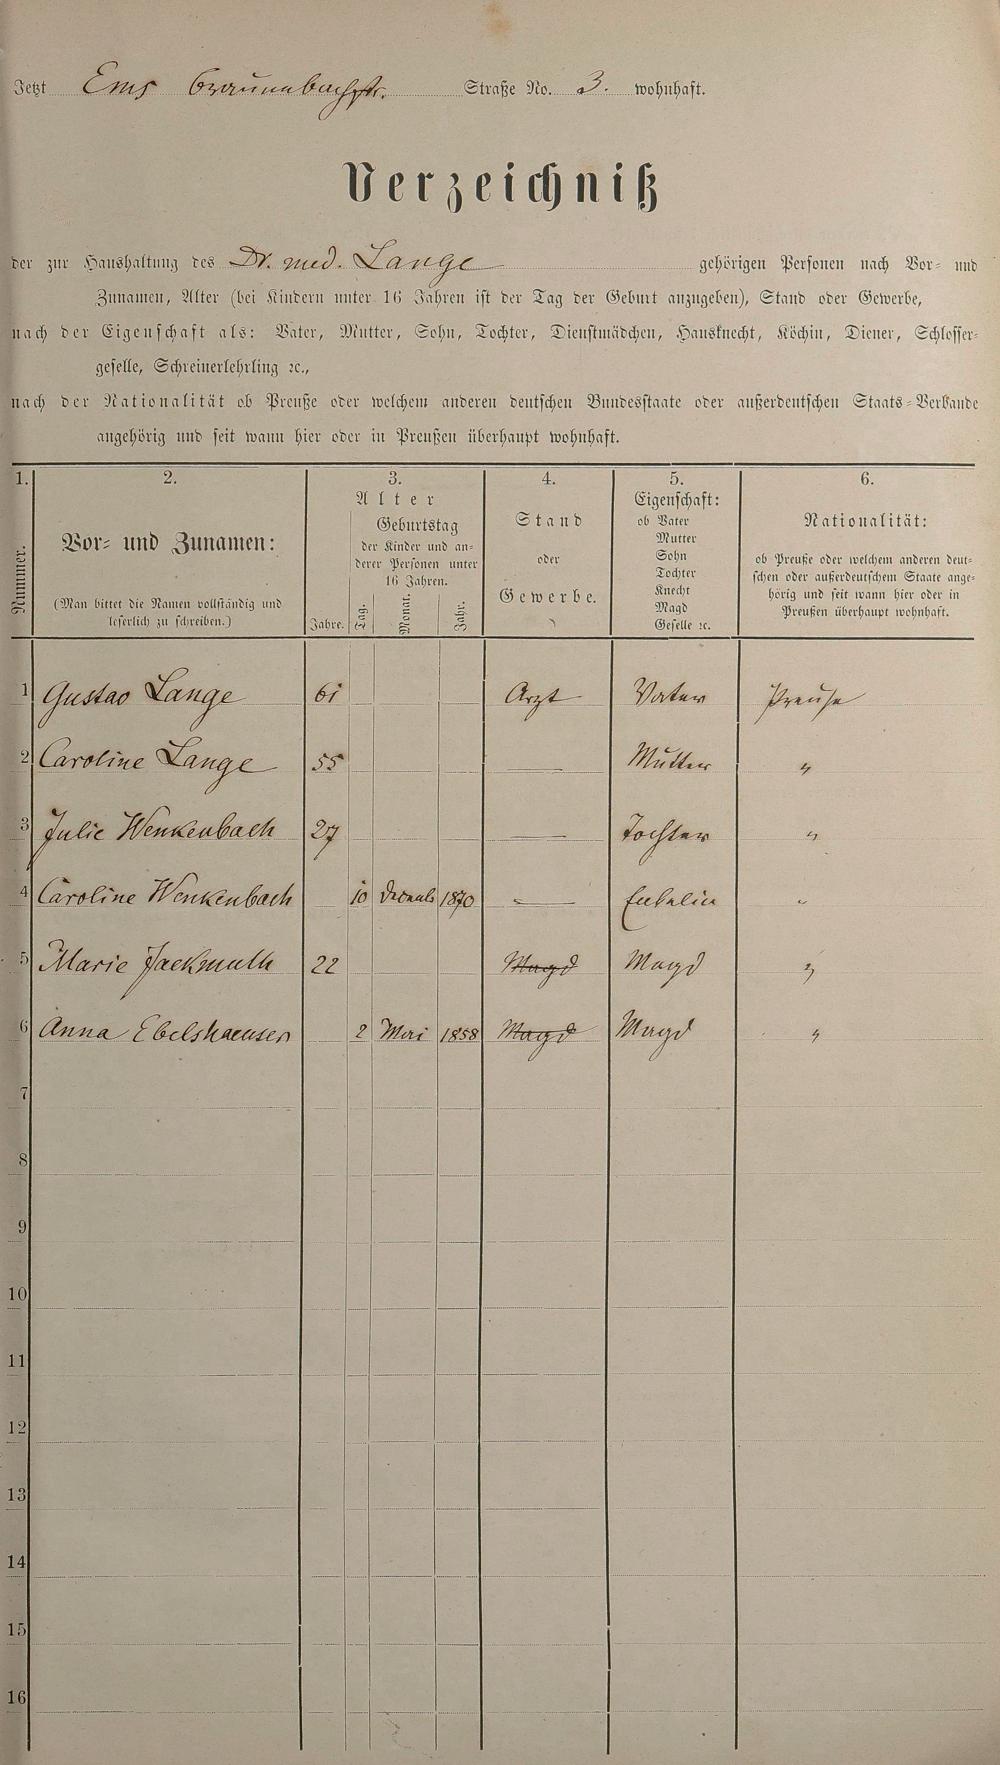 Jetzt Ems Graunenbachstr. Straße No. 3. wohnhaft.
Verzeichniß
der zur Haushaltung des Dr. med. Lange gehörigen Personen nach Vor- und
Zunamen, Alter (bei Kindern unter 16 Jahren ist der Tag der Geburt anzugeben), Stand oder Gewerbe,
nach der Eigenschaft als: Vater, Mutter, Sohn, Tochter, Dienstmädchen, Hausknecht, Köchin, Diener, Schlosser-
geselle, Schreinerlehrling ꝛc.,
nach der Nationalität ob Preuße oder welchem anderen deutschen Bundesstaate oder außerdeutschen Staats-Verbande
angehörig und seit wann hier oder in Preußen überhaupt wohnhaft.
1. 2. 3. 4. 5. 6.
Nummer.
Vor- und Zunamen:
(Man bittet die Namen vollständig und
leserlich zu schreiben.)
Alter
Geburtstag
der Kinder und an-
derer Personen unter
16 Jahren.
Jahre. Tag. Monat. Jahr.
Stand
oder
Gewerbe.
Eigenschaft:
ob Vater
Mutter
Sohn
Tochter
Knecht
Magd
Geselle ꝛc.
Nationalität:
ob Preuße oder welchem anderen deut-
schen oder außerdeutschem Staate ange-
hörig und seit wann hier oder in
Preußen überhaupt wohnhaft.
1 Gustav Lange 61 Arzt Vater Preuße
2 Caroline Lange 55 — Mutter "
3 Julie Wenkenbach 27 — Tochter "
4 Caroline Wenkenbach 10 Decemb 1870 — Enkelin "
5 Marie Jackmuth 22 Magd Magd "
6 Anna Ebelshaeuser 2 Mai 1858 Magd Magd "
7
8
9
10
11
12
13
14
15
16